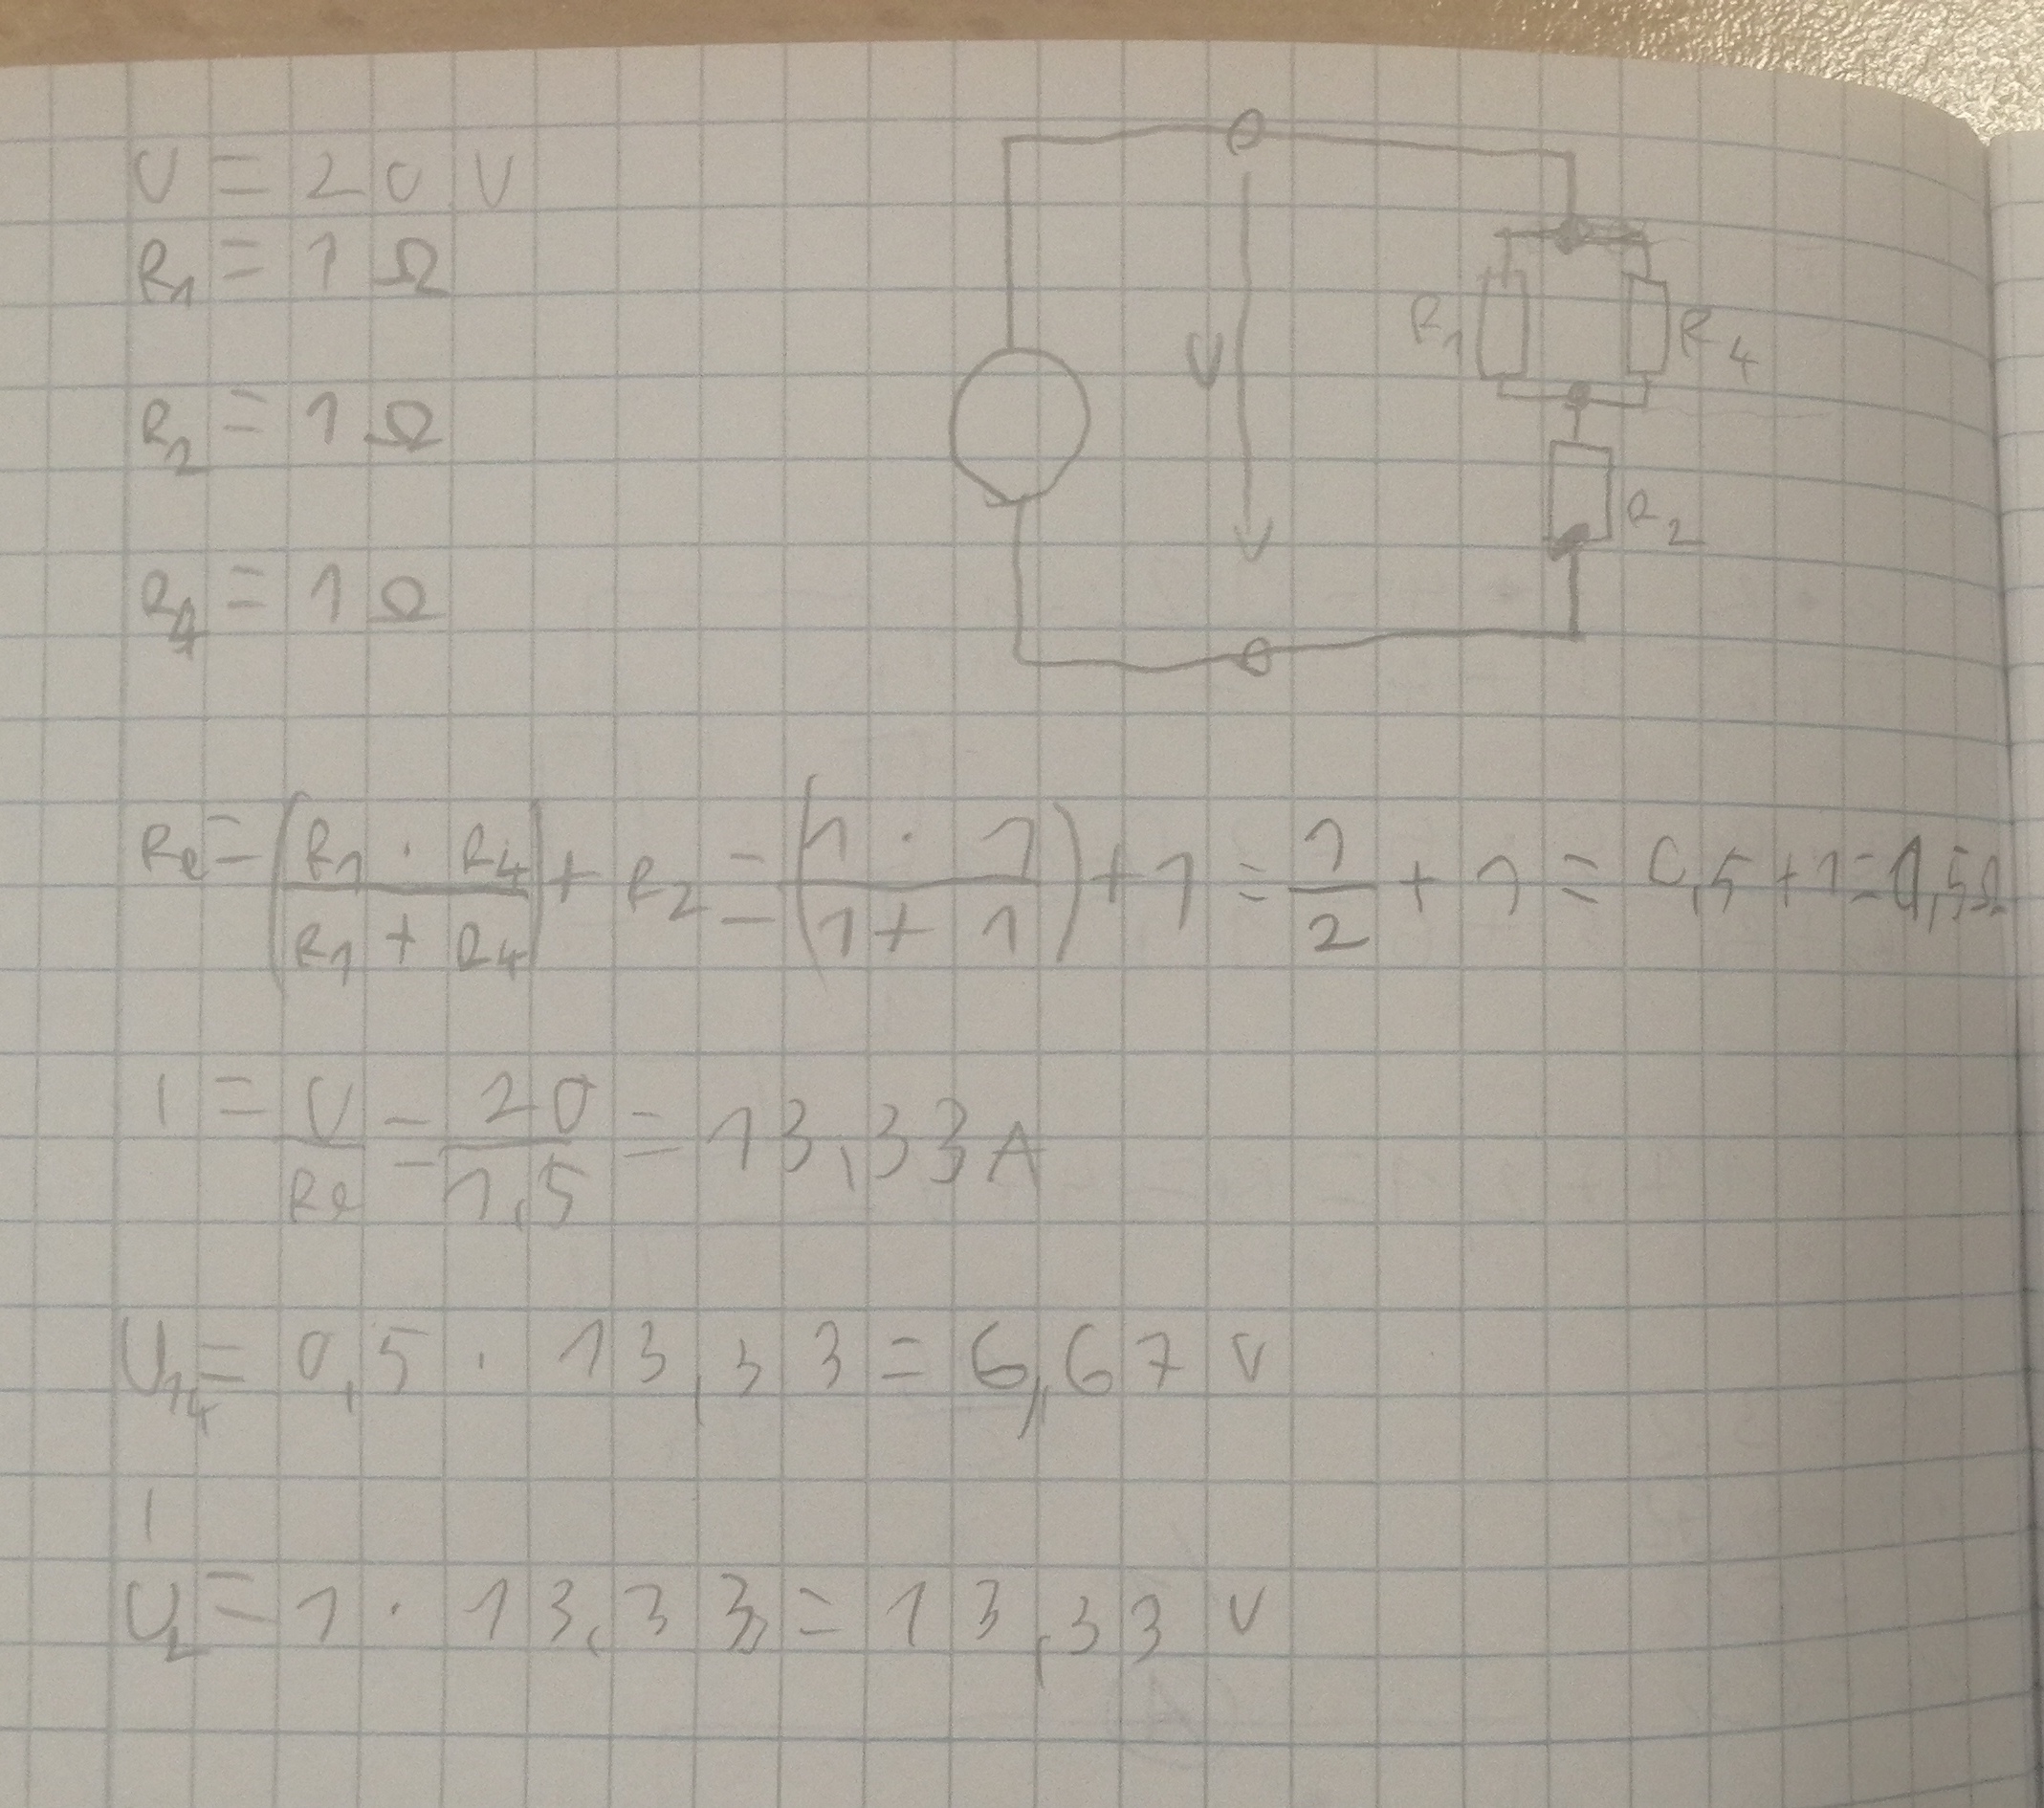 U = 20 V
R1 = 1 Ω
R2 = 1 Ω
R4 = 1 Ω
U
R1
R4
R2
Re = (R1 · R4 / R1 + R4) + R2 = (1 · 1 / 1 + 1) + 1 = 1/2 + 1 = 0,5 + 1 = 1,5Ω
I = U/Re = 20/1,5 = 13,33 A
U14 = 0,5 · 13,33 = 6,67 V
I
U2 = 1 · 13,33 = 13,33 V